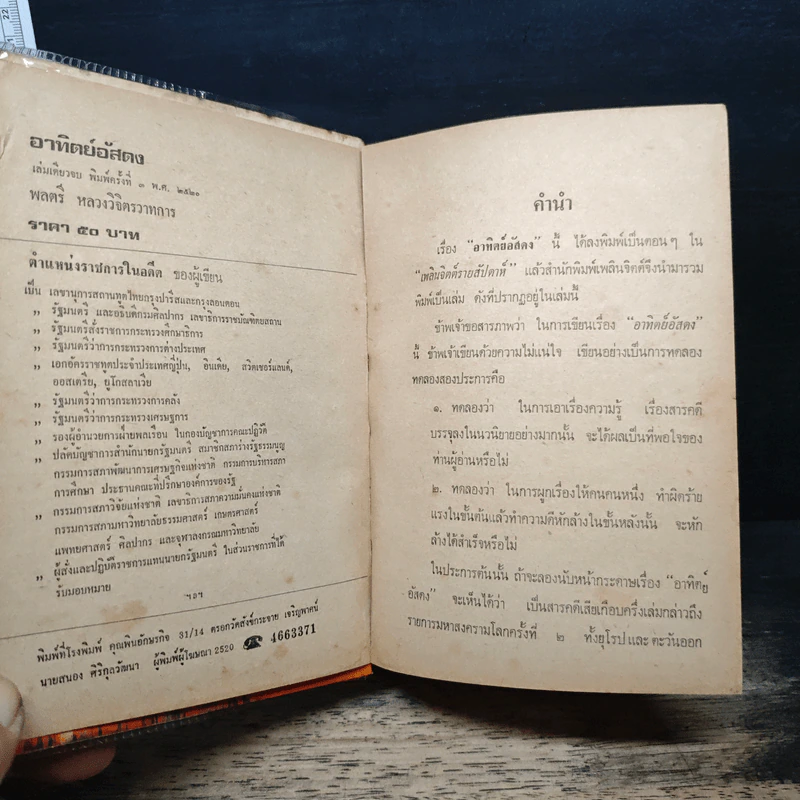 อาทิตย์อัสดง
เล่มเดียวจบ พิมพ์ครั้งที่ ๓ พ.ศ. ๒๕๒๐
พลตรี หลวงวิจิตรวาทการ
ราคา ๕๐ บาท
ตำแหน่งราชการในอดีต ของผู้เขียน
เป็น เลขานุการสถานทูตไทยกรุงปารีสและกรุงลอนดอน
,, รัฐมนตรี และอธิบดีกรมศิลปากร เลขาธิการราชบัณฑิตยสถาน
,, รัฐมนตรีสั่งราชการกระทรวงศึกษาธิการ
,, รัฐมนตรีว่าการกระทรวงการต่างประเทศ
,, เอกอัครราชทูตประจำประเทศญี่ปุ่น, อินเดีย, สวิตเซอร์แลนด์,
ออสเตรีย, ยูโกสลาเวีย
,, รัฐมนตรีว่าการกระทรวงการคลัง
,, รัฐมนตรีว่าการกระทรวงเศรษฐการ
,, รองผู้อำนวยการฝ่ายพลเรือน ในกองบัญชาการคณะปฏิวัติ
,, ปลัดบัญชาการสำนักนายกรัฐมนตรี สมาชิกสภาร่างรัฐธรรมนูญ
กรรมการสภาพัฒนาการเศรษฐกิจแห่งชาติ กรรมการบริหารสภา
การศึกษา ประธานคณะที่ปรึกษาองค์การของรัฐ
,, กรรมการสภาวิจัยแห่งชาติ เลขาธิการสภาความมั่นคงแห่งชาติ
กรรมการสภามหาวิทยาลัยธรรมศาสตร์ เกษตรศาสตร์
แพทยศาสตร์ ศิลปากร และจุฬาลงกรณมหาวิทยาลัย
,, ผู้สั่งและปฏิบัติราชการแทนนายกรัฐมนตรี ในส่วนราชการที่ได้
รับมอบหมาย ฯลฯ
พิมพ์ที่โรงพิมพ์ คุณพินอักษรกิจ 31/14 ตรอกวัดสังข์กระจาย เจริญพาศน์
นายสนอง ศิริกุลวัฒนา ผู้พิมพ์ผู้โฆษณา 2520 ☎ 4663371
คำนำ
เรื่อง "อาทิตย์อัสดง" นี้ ได้ลงพิมพ์เป็นตอนๆ ใน
"เพลินจิตต์รายสัปดาห์" แล้วสำนักพิมพ์เพลินจิตต์จึงนำมารวม
พิมพ์เป็นเล่ม ดังที่ปรากฏอยู่ในเล่มนี้
ข้าพเจ้าขอสารภาพว่า ในการเขียนเรื่อง "อาทิตย์อัสดง"
นี้ ข้าพเจ้าเขียนด้วยความไม่แน่ใจ เขียนอย่างเป็นการทดลอง
ทดลองสองประการคือ
๑. ทดลองว่า ในการเอาเรื่องความรู้ เรื่องสารคดี
บรรจุลงในนวนิยายอย่างมากนั้น จะได้ผลเป็นที่พอใจของ
ท่านผู้อ่านหรือไม่
๒. ทดลองว่า ในการผูกเรื่องให้คนคนหนึ่ง ทำผิดร้าย
แรงในขั้นต้นแล้วทำความดีหักล้างในขั้นหลังนั้น จะหัก
ล้างได้สำเร็จหรือไม่
ในประการต้นนั้น ถ้าจะลองนับหน้ากระดาษเรื่อง "อาทิตย์
อัสดง" จะเห็นได้ว่า เป็นสารคดีเสียเกือบครึ่งเล่มกล่าวถึง
รายการมหาสงครามโลกครั้งที่ ๒ ทั้งยุโรปและตะวันออก